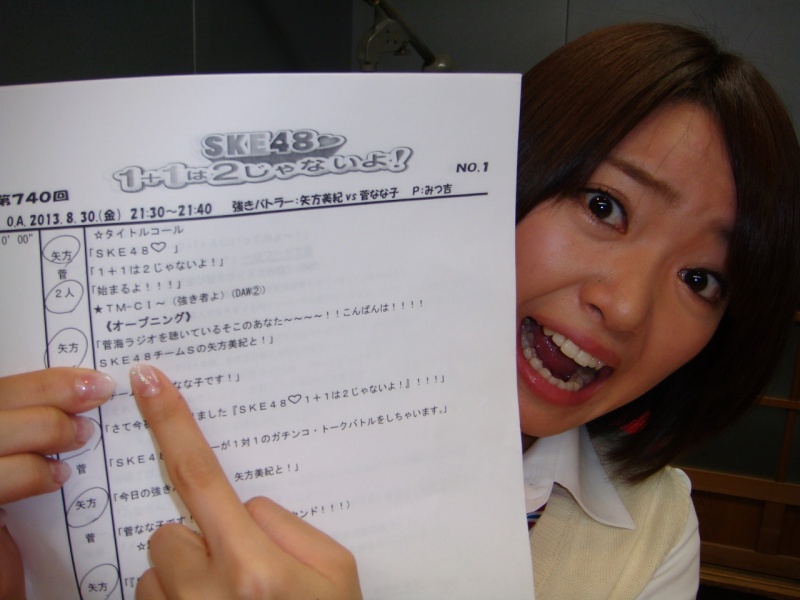 SKE48
1+1は2じゃないよ!
NO.1
第740回
O.A. 2013. 8. 30.(金) 21:30～21:40 強きバトラー:矢方美紀 vs 菅なな子 P:みつ吉
0' 00"
☆タイトルコール
矢方 「SKE48♡ 」
菅 「1+1は2じゃないよ!」
2人 「始まるよ!!!!」
★TM-CI～(強き者よ)(DAW②)
《オープニング》
矢方 「菅海ラジオを聴いているそこのあなた～～～～!!こんばんは!!!!
SKE48チームSの矢方美紀と!」
なな子です!」
「さて今 ました『SKE48♡1+1は2じゃないよ!』!!!」
菅 「SKE48 ーが1対1のガチンコ・トークバトルをしちゃいます。」
矢方 「今日の強き 矢方美紀と!」
菅 「菅なな子です! ンド!!!)
矢方